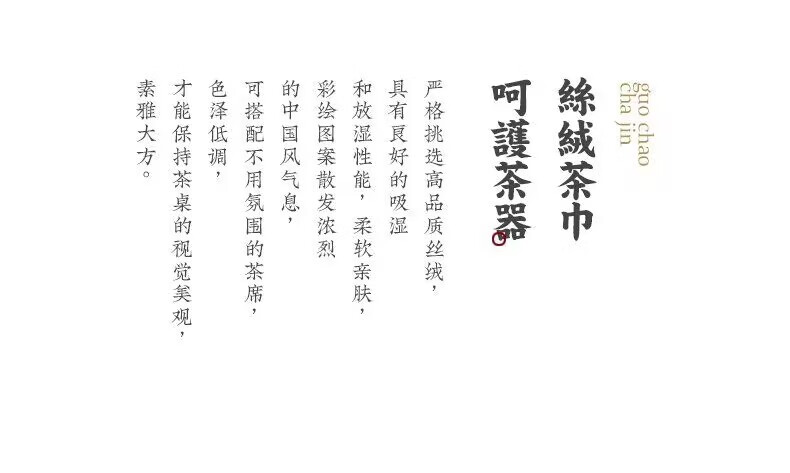 guo chao
cha jin
絲絨茶巾
呵護茶器
严格挑选高品质丝绒，
具有良好的吸湿
和放湿性能，柔软亲肤，
彩绘图案散发浓烈
的中国风气息，
可搭配不用氛围的茶席，
色泽低调，
才能保持茶桌的视觉美观，
素雅大方。